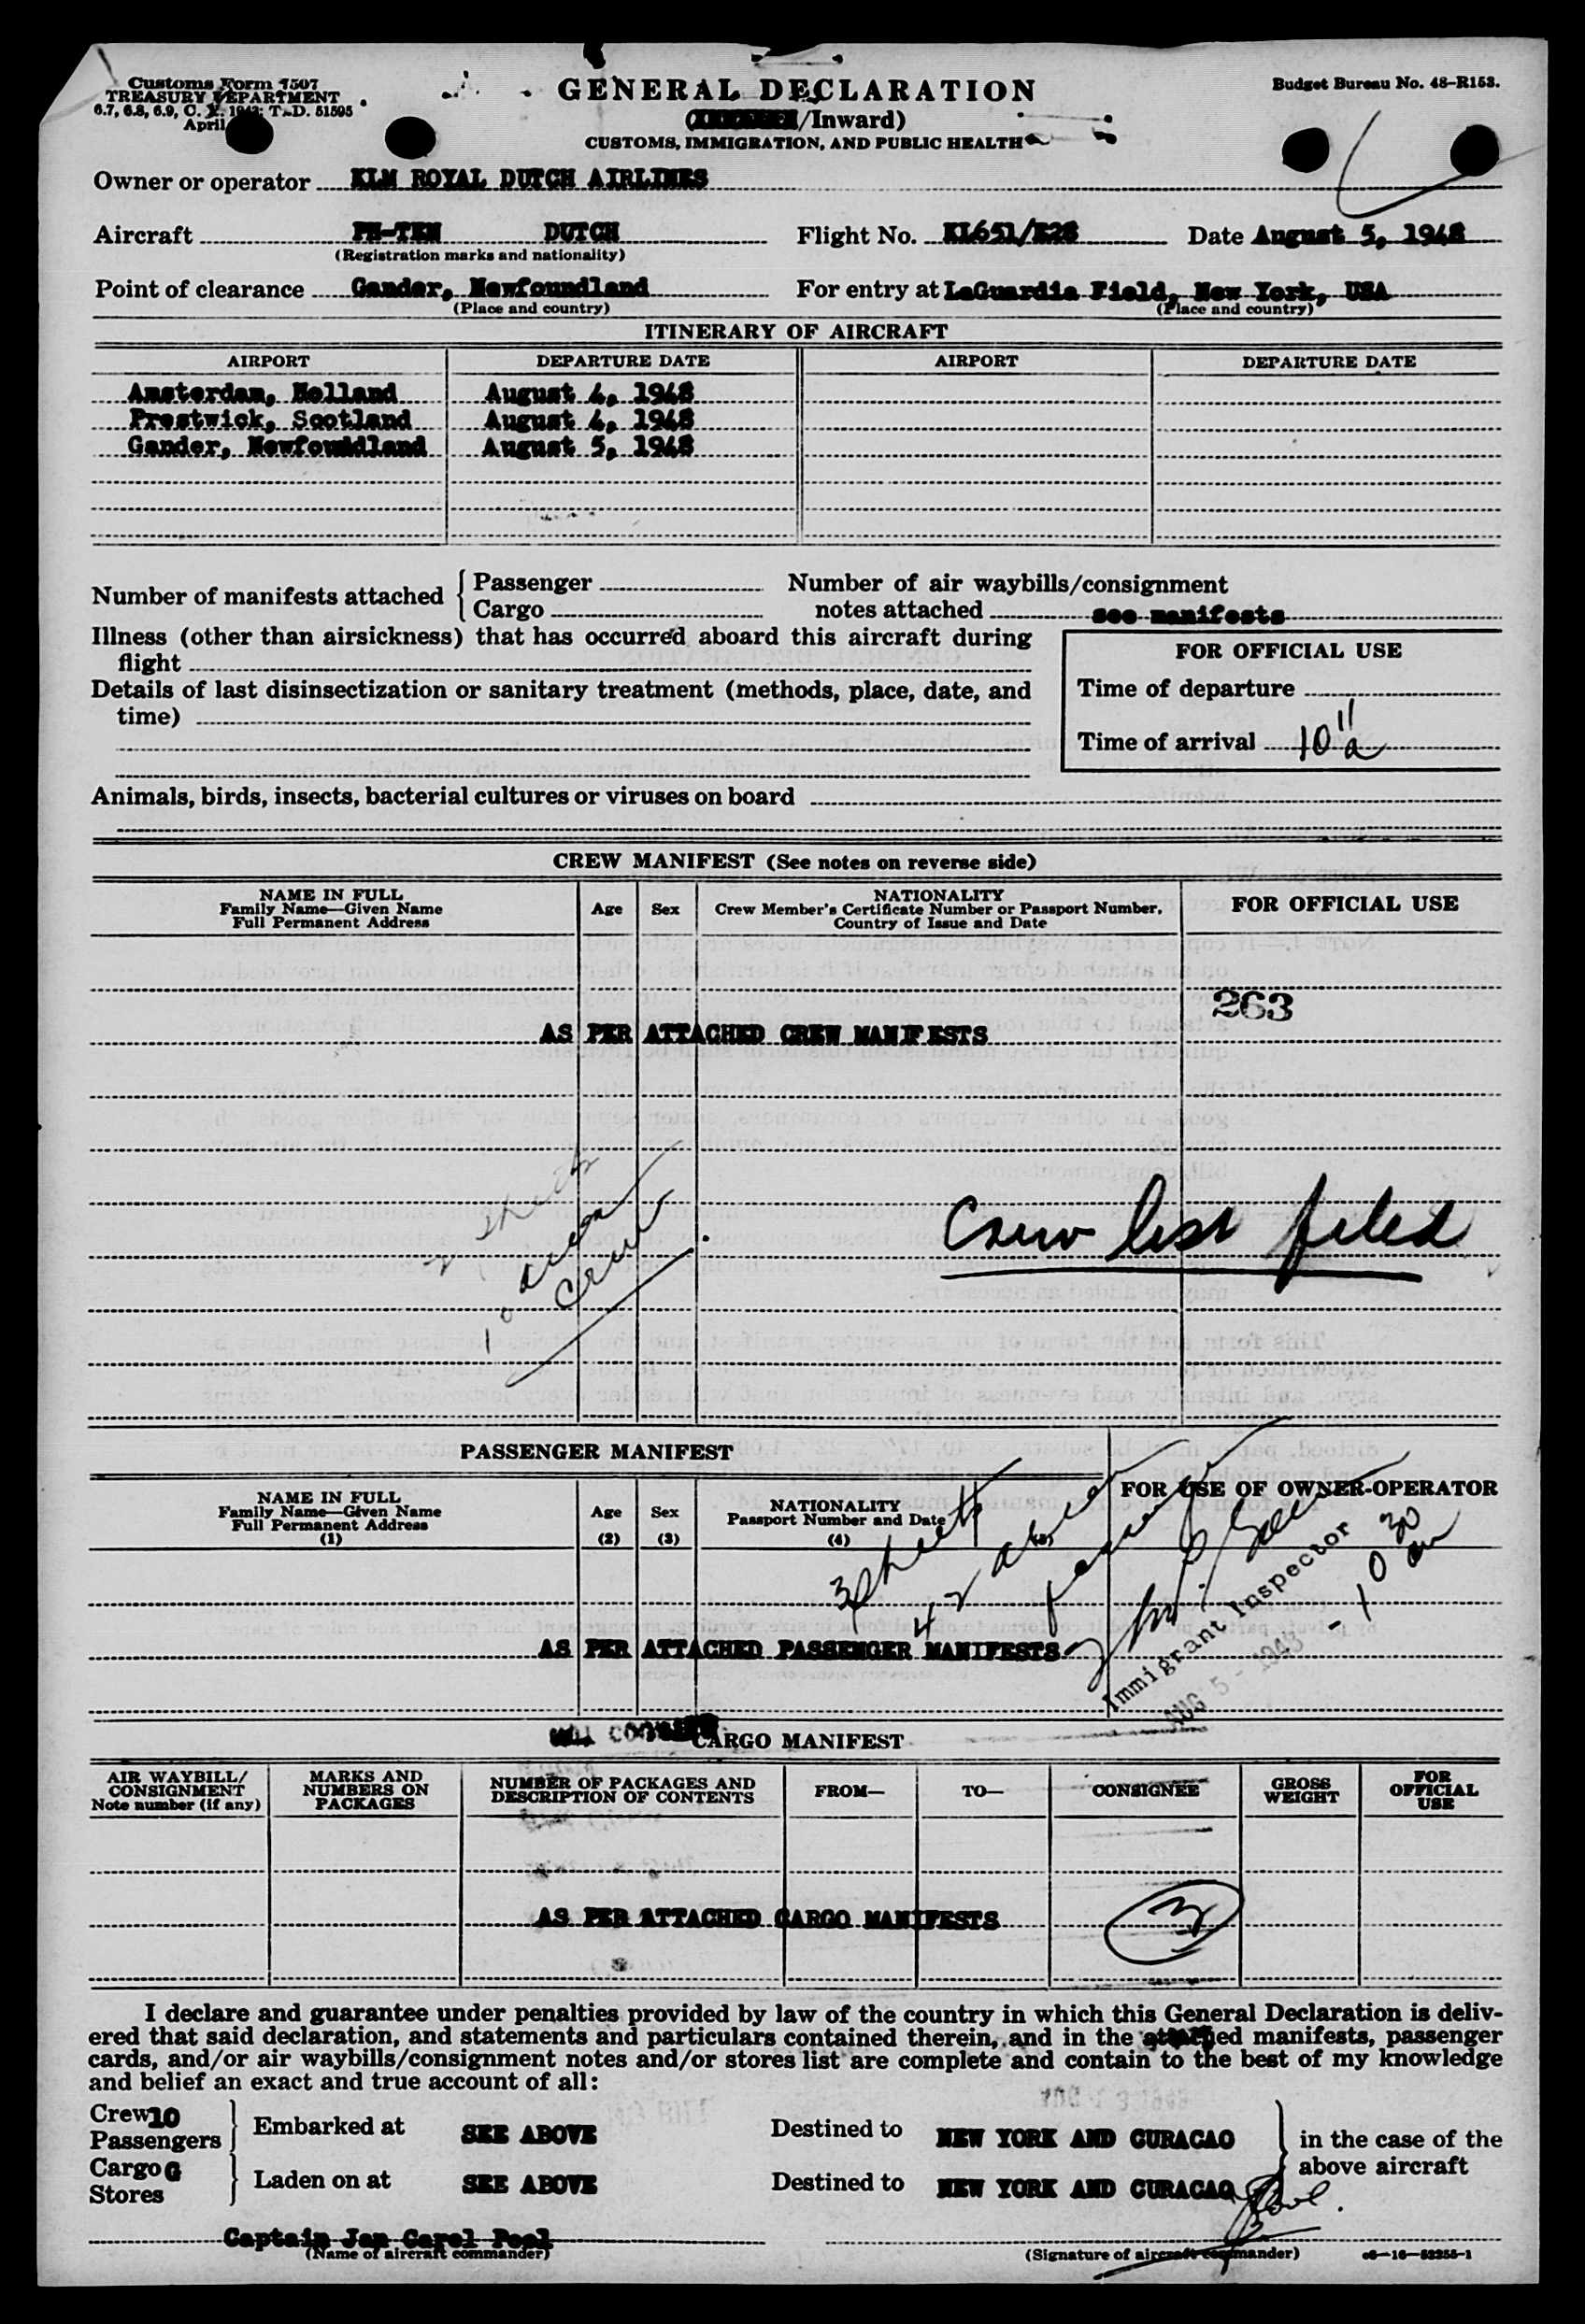 Customs Form 7507
TREASURY DEPARTMENT
6.7, 6.8, 6.9, C. R. 1943; T.D. 51595
April
GENERAL DECLARATION
Budget Bureau No. 48-R153.
/Inward)
CUSTOMS, IMMIGRATION, AND PUBLIC HEALTH
Owner or operator KLM ROYAL DUTCH AIRLINES
Aircraft PH-TEN DUTCH Flight No. KL651/E28 Date August 5, 1948
(Registration marks and nationality)
Point of clearance Gander, Newfoundland For entry at LaGuardia Field, New York, USA
(Place and country) (Place and country)
ITINERARY OF AIRCRAFT
AIRPORT DEPARTURE DATE AIRPORT DEPARTURE DATE
Amsterdam, Holland August 4, 1948
Prestwick, Scotland August 4, 1948
Gander, Newfoundland August 5, 1948
Number of manifests attached { Passenger Number of air waybills/consignment
Cargo notes attached see manifests
Illness (other than airsickness) that has occurred aboard this aircraft during
flight
FOR OFFICIAL USE
Details of last disinsectization or sanitary treatment (methods, place, date, and
time)
Time of departure
Time of arrival 10 11 a
Animals, birds, insects, bacterial cultures or viruses on board
CREW MANIFEST (See notes on reverse side)
NAME IN FULL
Family Name—Given Name
Full Permanent Address
Age Sex
NATIONALITY
Crew Member's Certificate Number or Passport Number,
Country of Issue and Date
FOR OFFICIAL USE
263
AS PER ATTACHED CREW MANIFESTS
2 sheets
10 alien
crew
Crew list filed
PASSENGER MANIFEST
FOR USE OF OWNER-OPERATOR
NAME IN FULL
Family Name—Given Name
Full Permanent Address
(1)
Age
(2)
Sex
(3)
NATIONALITY
Passport Number and Date
(4)
3 sheets
42 alien
Immigrant Inspector
AUG 5 - 1948 - 10 30 am
AS PER ATTACHED PASSENGER MANIFESTS
CARGO MANIFEST
AIR WAYBILL/
CONSIGNMENT
Note number (if any)
MARKS AND
NUMBERS ON
PACKAGES
NUMBER OF PACKAGES AND
DESCRIPTION OF CONTENTS
FROM—
TO—
CONSIGNEE
GROSS
WEIGHT
FOR
OFFICIAL
USE
AS PER ATTACHED CARGO MANIFESTS
I declare and guarantee under penalties provided by law of the country in which this General Declaration is deliv-
ered that said declaration, and statements and particulars contained therein, and in the attached manifests, passenger
cards, and/or air waybills/consignment notes and/or stores list are complete and contain to the best of my knowledge
and belief an exact and true account of all:
Crew 10
Passengers } Embarked at SEE ABOVE Destined to NEW YORK AND CURACAO } in the case of the
Cargo G
Stores } Laden on at SEE ABOVE Destined to NEW YORK AND CURACAO above aircraft
Captain Jan Carel Peel
(Name of aircraft commander) (Signature of aircraft commander) c6—16—52255-1